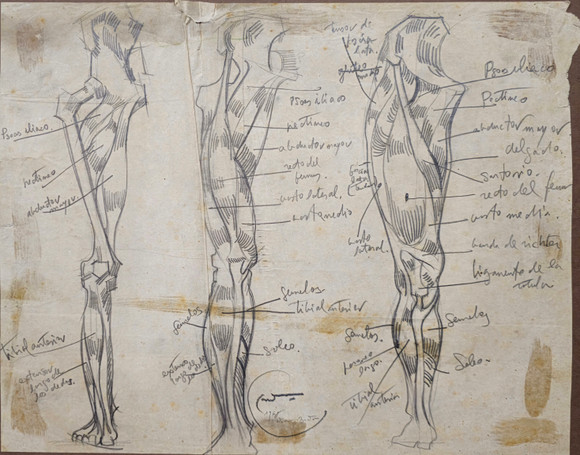 Psoas iliaco
pectineo
abductor
mayor
tibial anterior
extensor
largo de
los dedos
Psoas iliaco
pectineo
abductor mayor
recto del
femur
vasto lateral.
vasto medio
Gemelos
tibial anterior
Gemelos
extensor
Soleo.
tensor de
fascia
lata.
vasto
lateral.
Gemelos.
peroneo
largo.
tibial
anterior
Psoas iliaco
Pectineo
abductor mayor
delgado.
Sartorio.
recto del femur
vasto medio.
banda de richter
ligamento de la
rotula
Gemelos
Soleo.